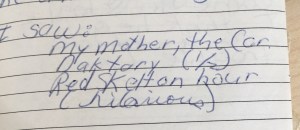 I saw:
My mother, the Car
Daktary (1/2)
Red Skelton hour
(hilarious)